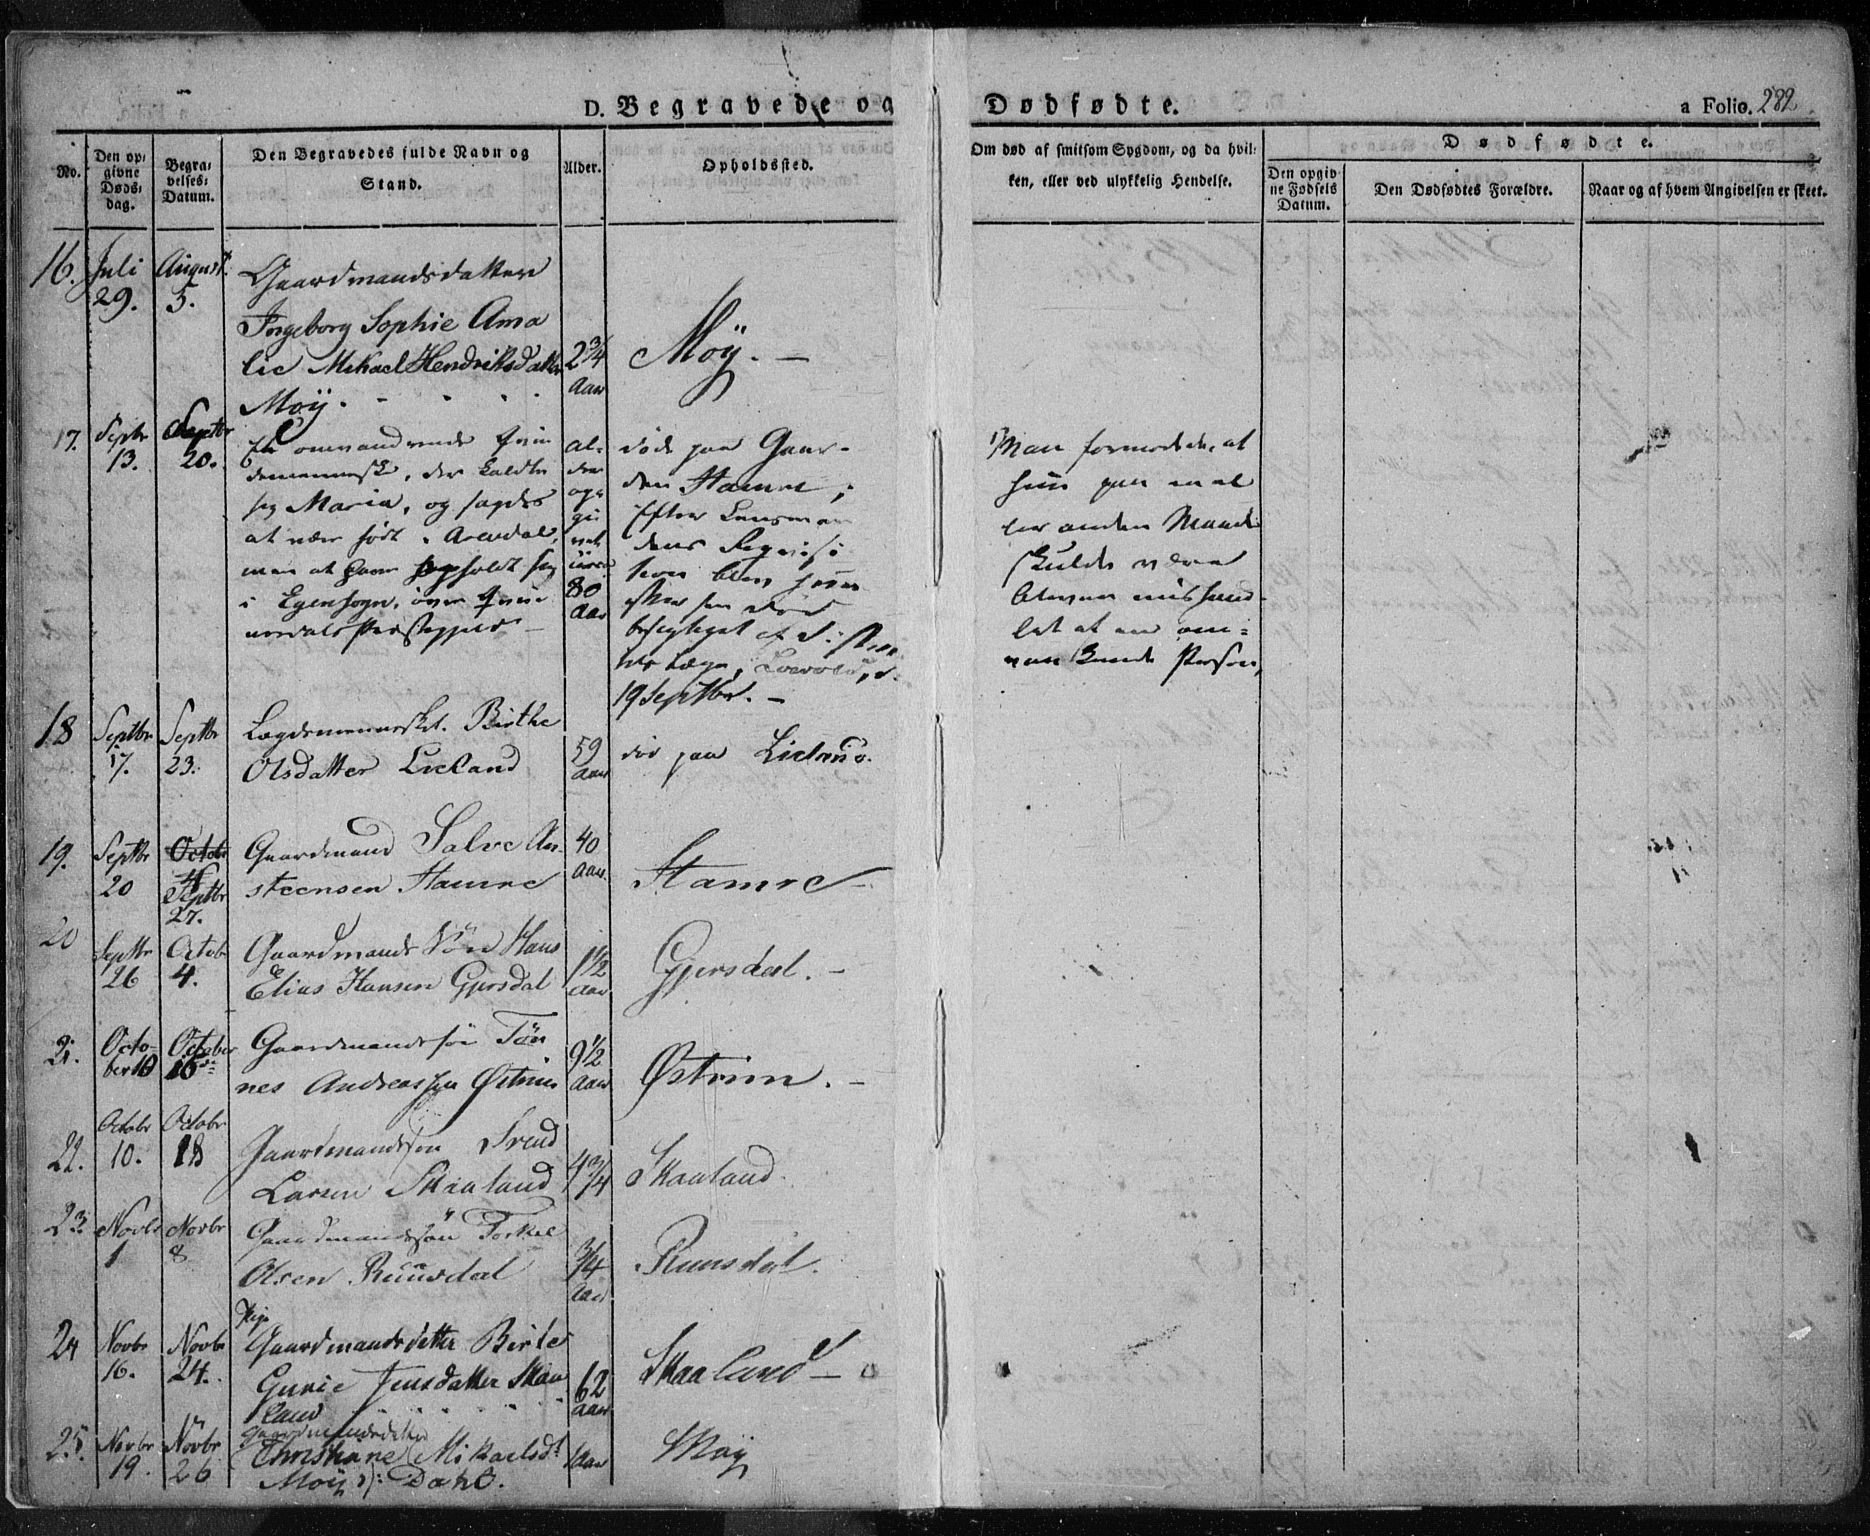 D. Begravede og Dødfødte.
a Folio. 282
No.
Den opgivne Dødsdag.
Begravelses-Datum.
Den Begravedes fulde Navn og Stand.
Alder.
Opholdssted.
Om død af smitsom Sygdom, og da hvilken, eller ved ulykkelig Hendelse.
Dødfødte.
Den opgivne Fødsels Datum.
Den Dødfødtes Forældre.
Naar og af hvem Angivelsen er skeet.
16. Juli 29. August 5.
Gaardmandsdatter
Ingeborg Sophie Ama
lie Mikael Hendriksdatter
Moÿ.
2 3/4 Aar
Moÿ. —
17. Septbr 13. Septbr 20.
En omvandrende Qvin
demenneske, der kaldte
sig Maria, og sagdes
at være født i Arendal,
men at have opholdt sig
i Egensogn, over Quin
esdals Præstegjeld —
al-
der
op-
gi
vet
80
Aar
døde paa Gaar-
den Hamre;
Efter Lensman
dens
blev hun
19 Septbr. —
Man formodede, at
hun paa en al
ler anden Maade
skulde være
bleven mishand-
let af en om-
vankende Person,
18 Septbr 17. Septbr 23.
Lægdemennesket Birthe
Olsdatter Lieland
59 Aar
død paa Lieland.
19. Septbr 20 Octobr 4 Septbr 27.
Gaardmand Salve An-
steensen Hamre
40 Aar.
Hamre —
20 Septbr 26 Octob 4.
Gaardmands Søn Hans
Elias Hansen Gjersdal
1 1/2 Aar
Gjersdal. —
21. Octo-ber 10 October
Gaardmandssøn Tøn
nes Andreassen Østrim
9 1/2 Aar
Østrim. —
22. Octobr 10. Octobr 18
Gaardmandssøn Svend
Larsen Skaaland
4 3/4
Skaaland.
23. Novbr 1 Novbr 8
Gaardmandssøn Torkel
Olsen Ruunsdal
3/4 Aar
Ruunsdal.
24 Novbr 16. Novbr 24.
Pige
Gaardmandsdatter Birte
Gurie Jensdatter Skaa
land
62 Aar
Skaaland —
25. Novbr 19. Novbr 26
Gaardmandsdatter
Christiane Mikaelsdt
Moÿ Dahl.
1 Aar
Moÿ